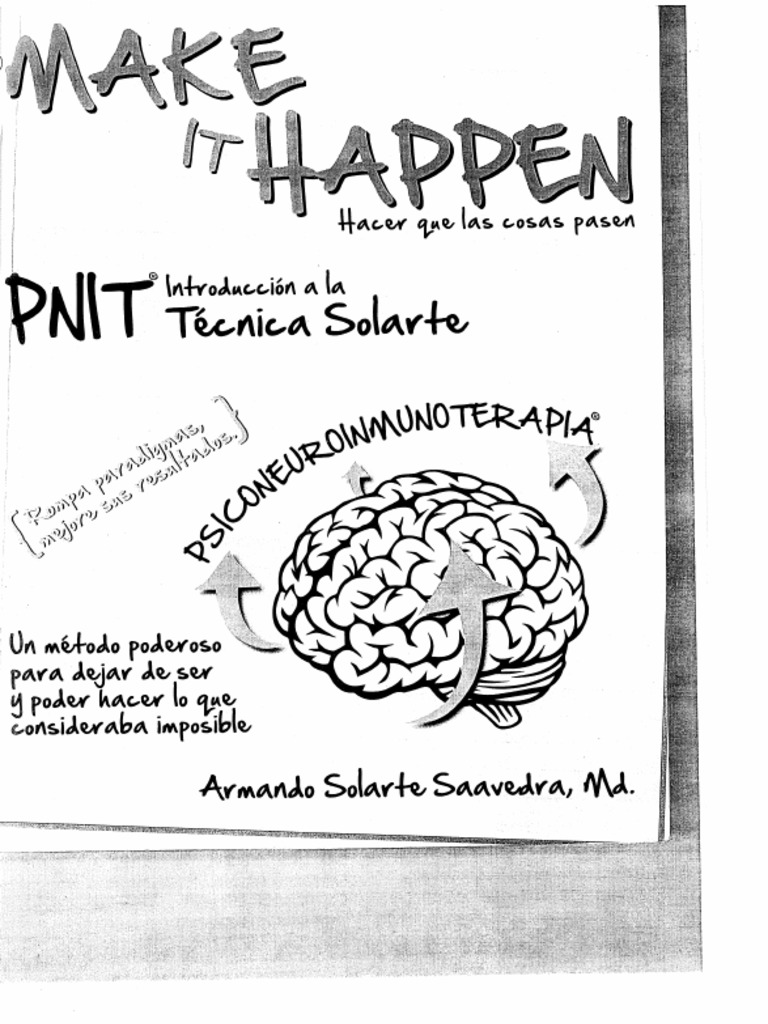 MAKE
IT HAPPEN
Hacer que las cosas pasen
PNIT© Introducción a la
Técnica Solarte
{Rompa paradigmas,
mejore sus resultados.}
PSICONEUROINMUNOTERAPIA©
Un método poderoso
para dejar de ser
y poder hacer lo que
consideraba imposible
Armando Solarte Saavedra, Md.